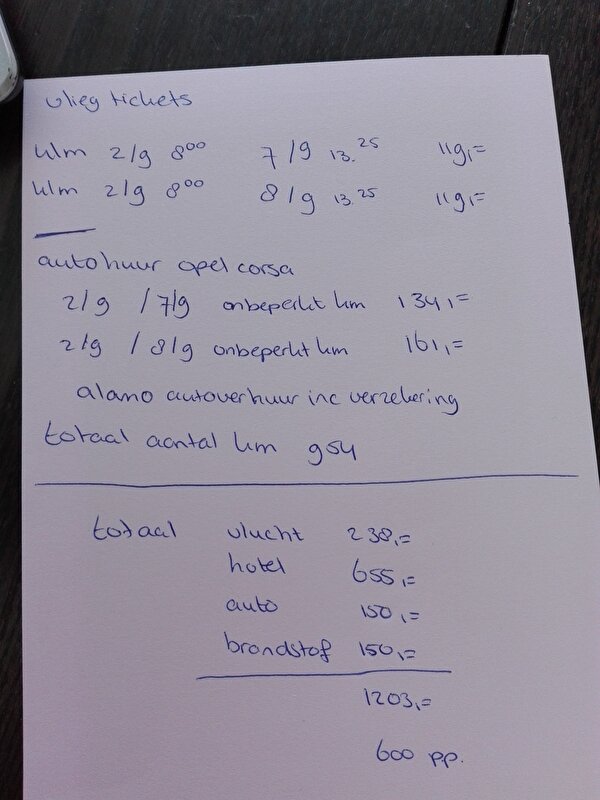 vlieg tickets
klm 2/9 8⁰⁰ 7/9 13.²⁵ 119,=
klm 2/9 8⁰⁰ 8/9 13.²⁵ 119,=
autohuur opel corsa
2/9 / 7/9 onbeperkt km 134,=
2/9 / 8/9 onbeperkt km 161,=
alamo autoverhuur inc verzekering
totaal aantal km 954
totaal vlucht 238,=
hotel 655,=
auto 150,=
brandstof 150,=
1203,=
600 pp.